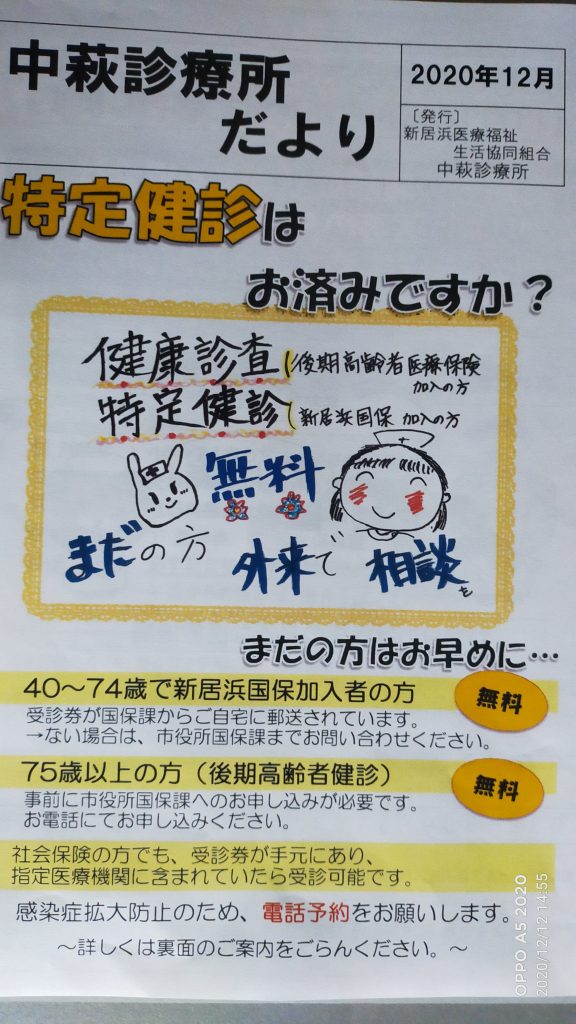 中萩診療所
だより
2020年12月
〔発行〕
新居浜医療福祉
生活協同組合
中萩診療所
特定健診は
お済みですか？
健康診査(後期高齢者医療保険
加入の方
特定健診(新居浜国保 加入の方
無料
まだの方 外来で 相談を
まだの方はお早めに…
40～74歳で新居浜国保加入者の方
無料
受診券が国保課からご自宅に郵送されています。
→ない場合は、市役所国保課までお問い合わせください。
75歳以上の方（後期高齢者健診）
無料
事前に市役所国保課へのお申し込みが必要です。
お電話にてお申し込みください。
社会保険の方でも、受診券が手元にあり、
指定医療機関に含まれていたら受診可能です。
感染症拡大防止のため、電話予約をお願いします。
～詳しくは裏面のご案内をごらんください。～
OPPO A5 2020
2020/12/12 14:55